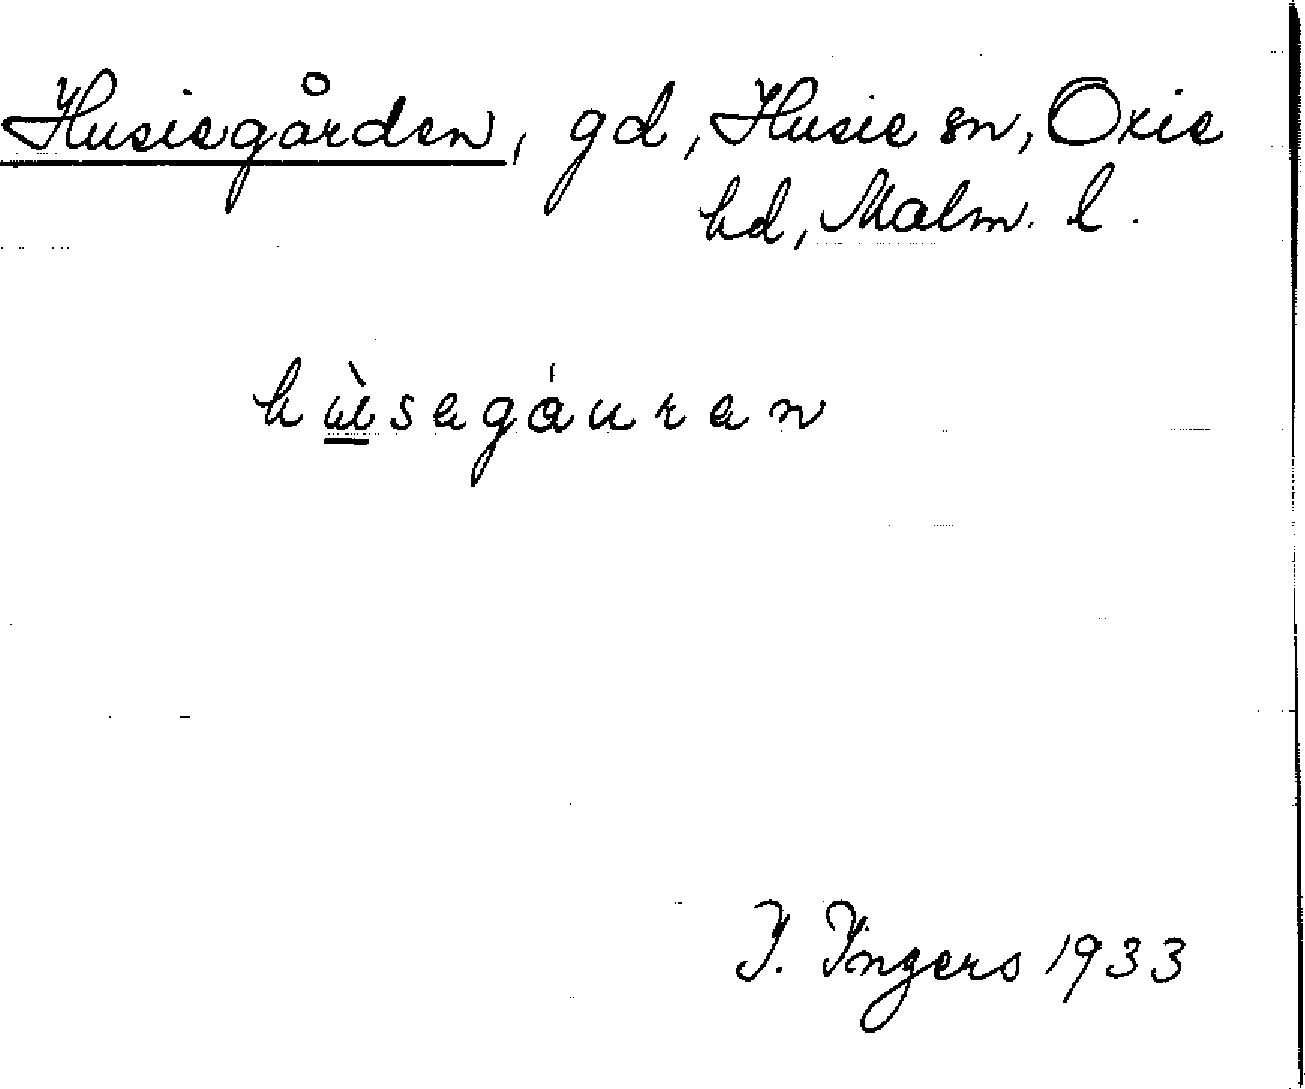 Husiegården, gd, Husie sn, Oxie
hd, Malm. l.
hùsegáuran
I. Ingers 1933